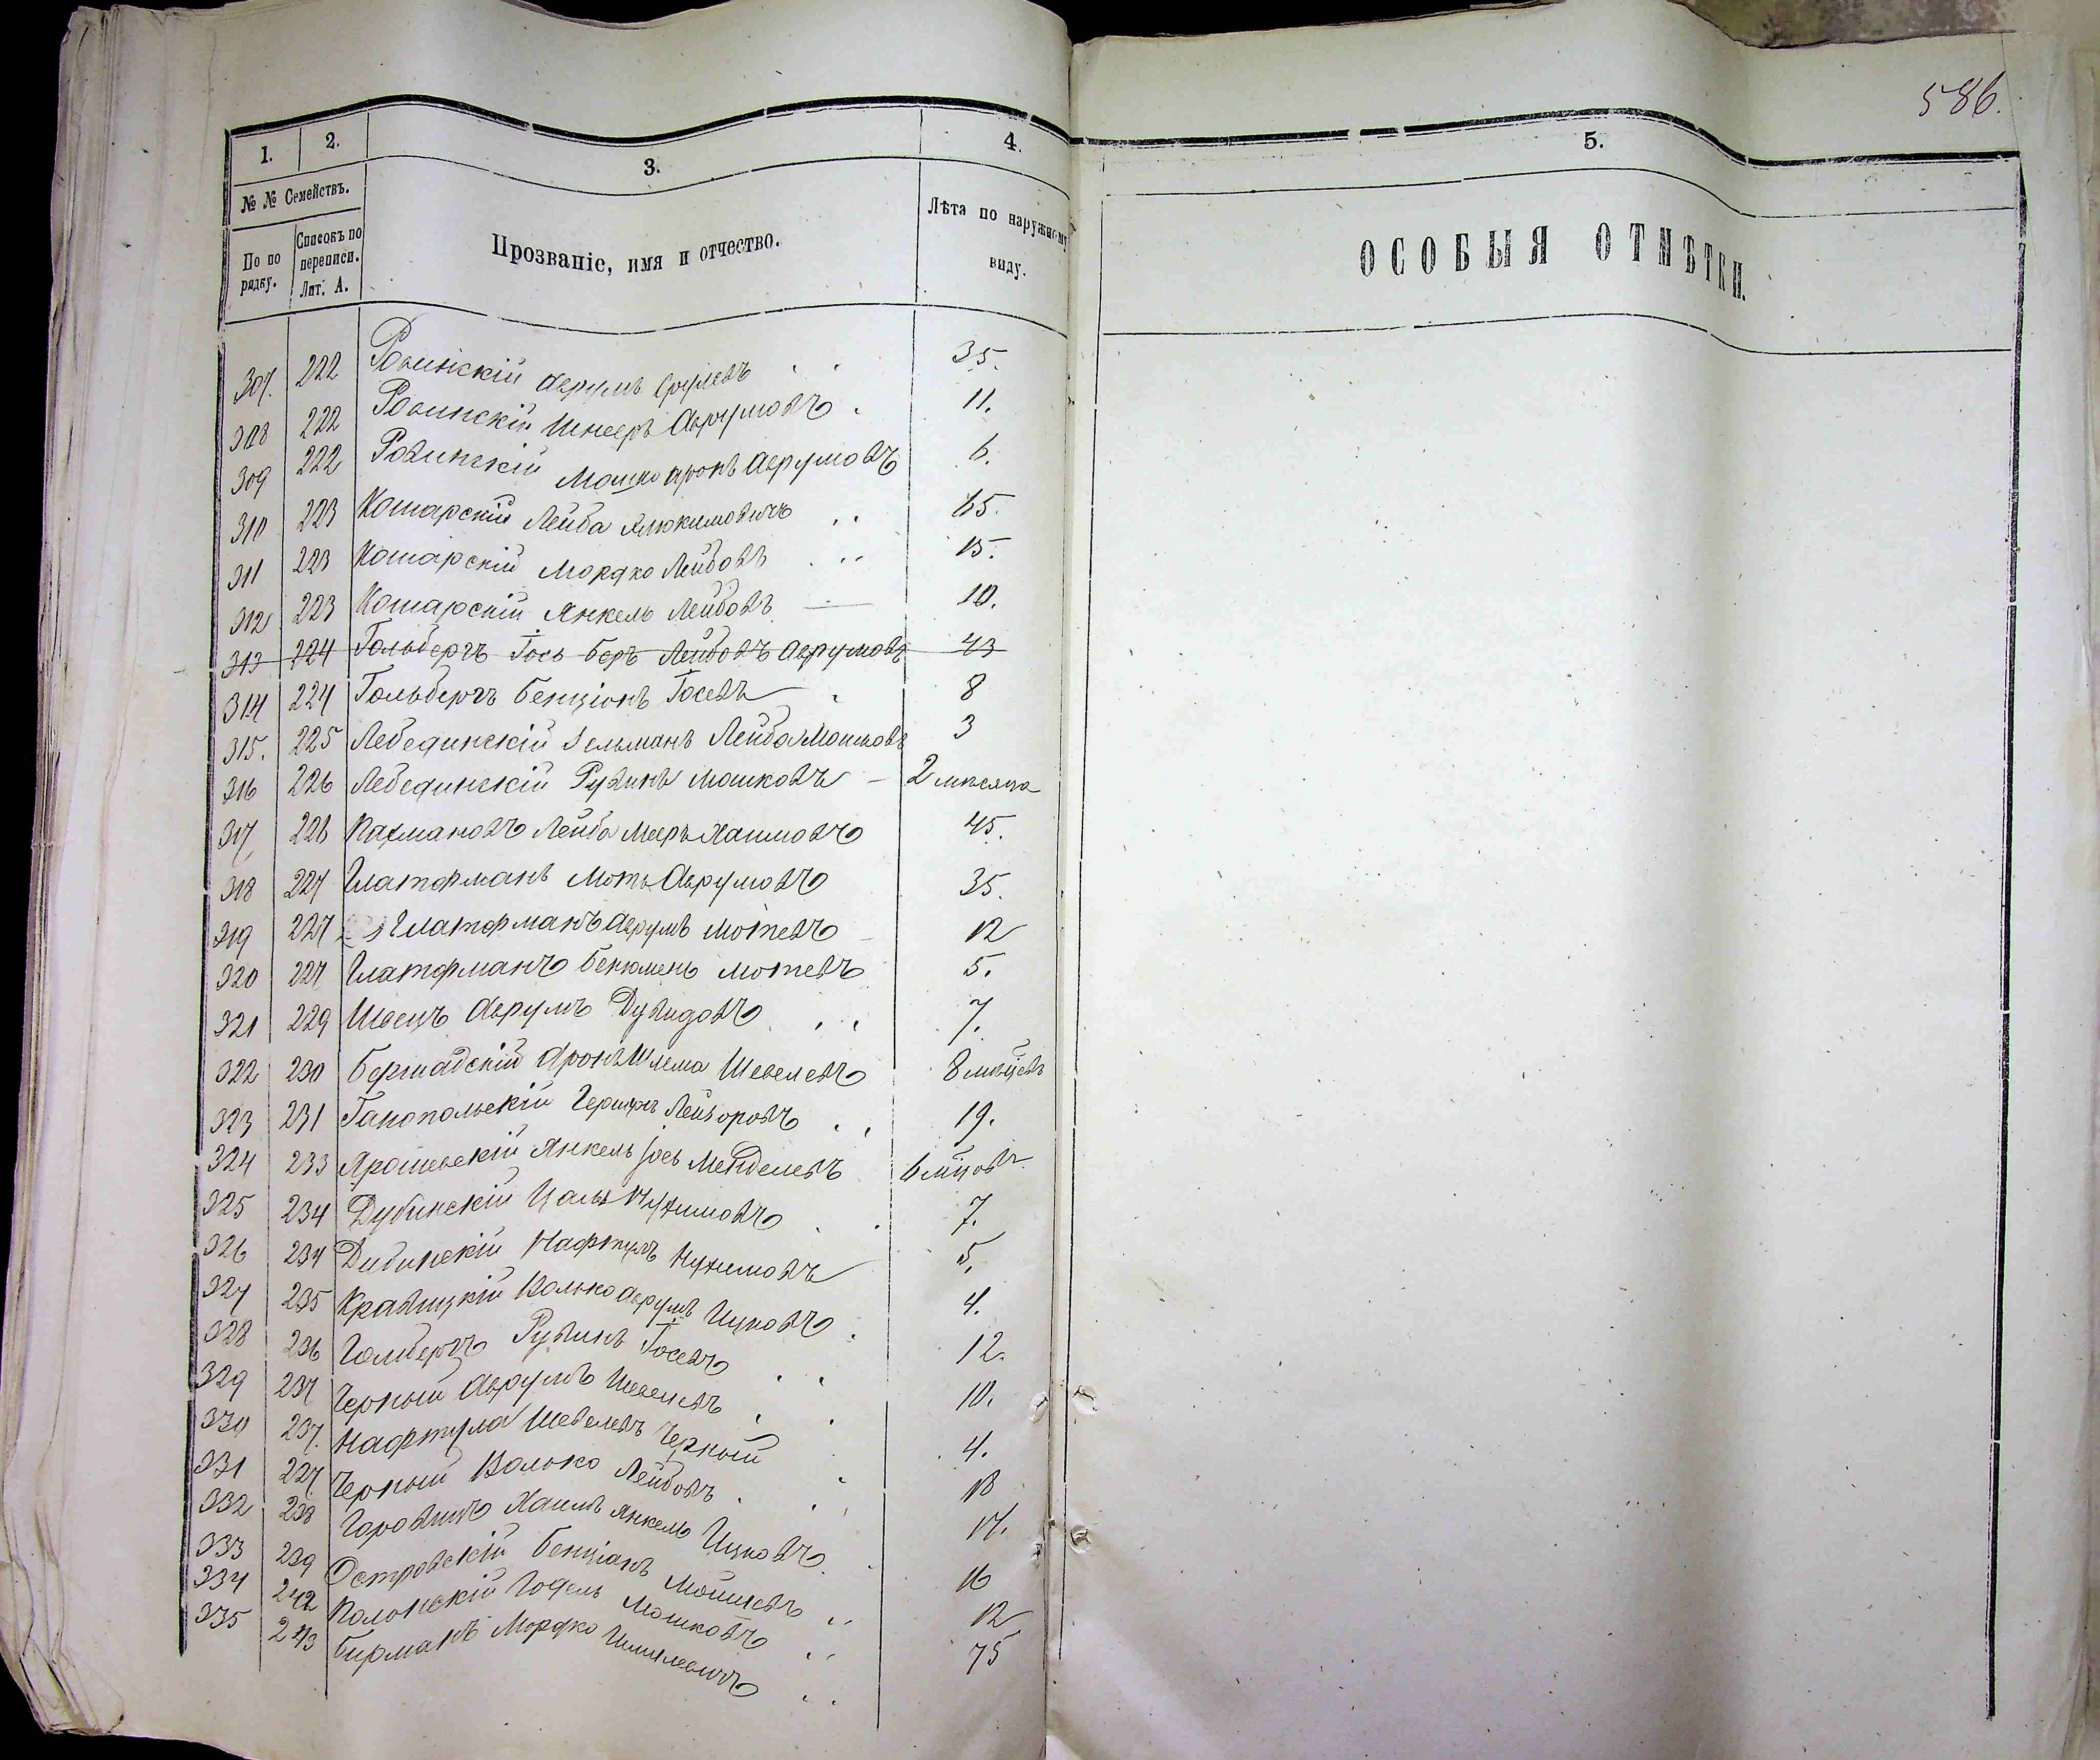 586.
1. 2. 3. 4. 5.
№ № Семействъ.
По по рядку.
Списокъ по переписи. Лит. А.
Прозваніе, имя и отчество.
Лѣта по наружному виду.
ОСОБЫЯ ОТМѢТКИ.
307. 222 Ровинскій Аврумъ Сруlевъ 35.
308 222 Ровинскій Шнееръ Аврумовъ 11.
309 222 Ровинскій Мошко Аронъ Аврумовъ 6.
310 223 Кошарскій Лейба 65.
311 223 Кошарскій Мордко Лейбовъ 15.
312 223 Кошарскій Янкель Лейбовъ 10.
313 224 Гольбергъ Іось Беръ Лейбовъ Аврумовъ 43
314 224 Гольбергъ Бенціонъ Іосевъ 8
315. 225 Лебединскій Зельманъ Лейба Мошковъ 3
316 226 Лебединскій Рувинъ Мошковъ 2 мѣсяца
317 228 Пахмановъ Лейба Мееръ Хаимовъ 45.
318 227 Глатфманъ Моть Аврумовъ 35.
319 227 Глатфманъ Аврумъ Мотевъ 12
320 227 Глатфманъ Бенюменъ Мотевъ 5.
321 229 Швецъ Аврумъ Дувидовъ 7.
322 230 Бершадскій Аронъ Шлема Шевелевъ 8 мѣсцевъ
323 231 Ганопольскій Гершъ Лейзоровъ 19.
324 233 Ярошевскій Янкель Іось Менделевъ 6 мѣцовъ
325 234 Дубинскій Цаль Нухимовъ 7.
326 234 Дубинскій Нафтулъ Нухимовъ 5.
327 235 Кравицкій Волько Аврумъ Ицковъ 4.
328 236 Голбергъ Рувинъ Іосевъ 12.
329 237 Черный Аврумъ Шевелевъ 10.
330 237. Нафтула Шевелевъ Черный 4.
331 237. Черный Волько Лейбовъ 18
332 238 Горовицъ Хаимъ Янкель Ицковъ 17.
333 239 Островскій Бенціанъ Мошковъ 16
334 242 Полонскій Годель Мошковъ 12
335 243 Бирманъ Мордко Шмилевичъ 75